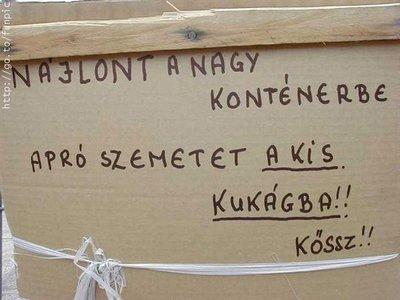 http://go.to/funpic
NÁJLONT A NAGY
KONTÉNERBE
APRÓ SZEMETET A KIS
KUKÁGBA!!
KŐSSZ!!